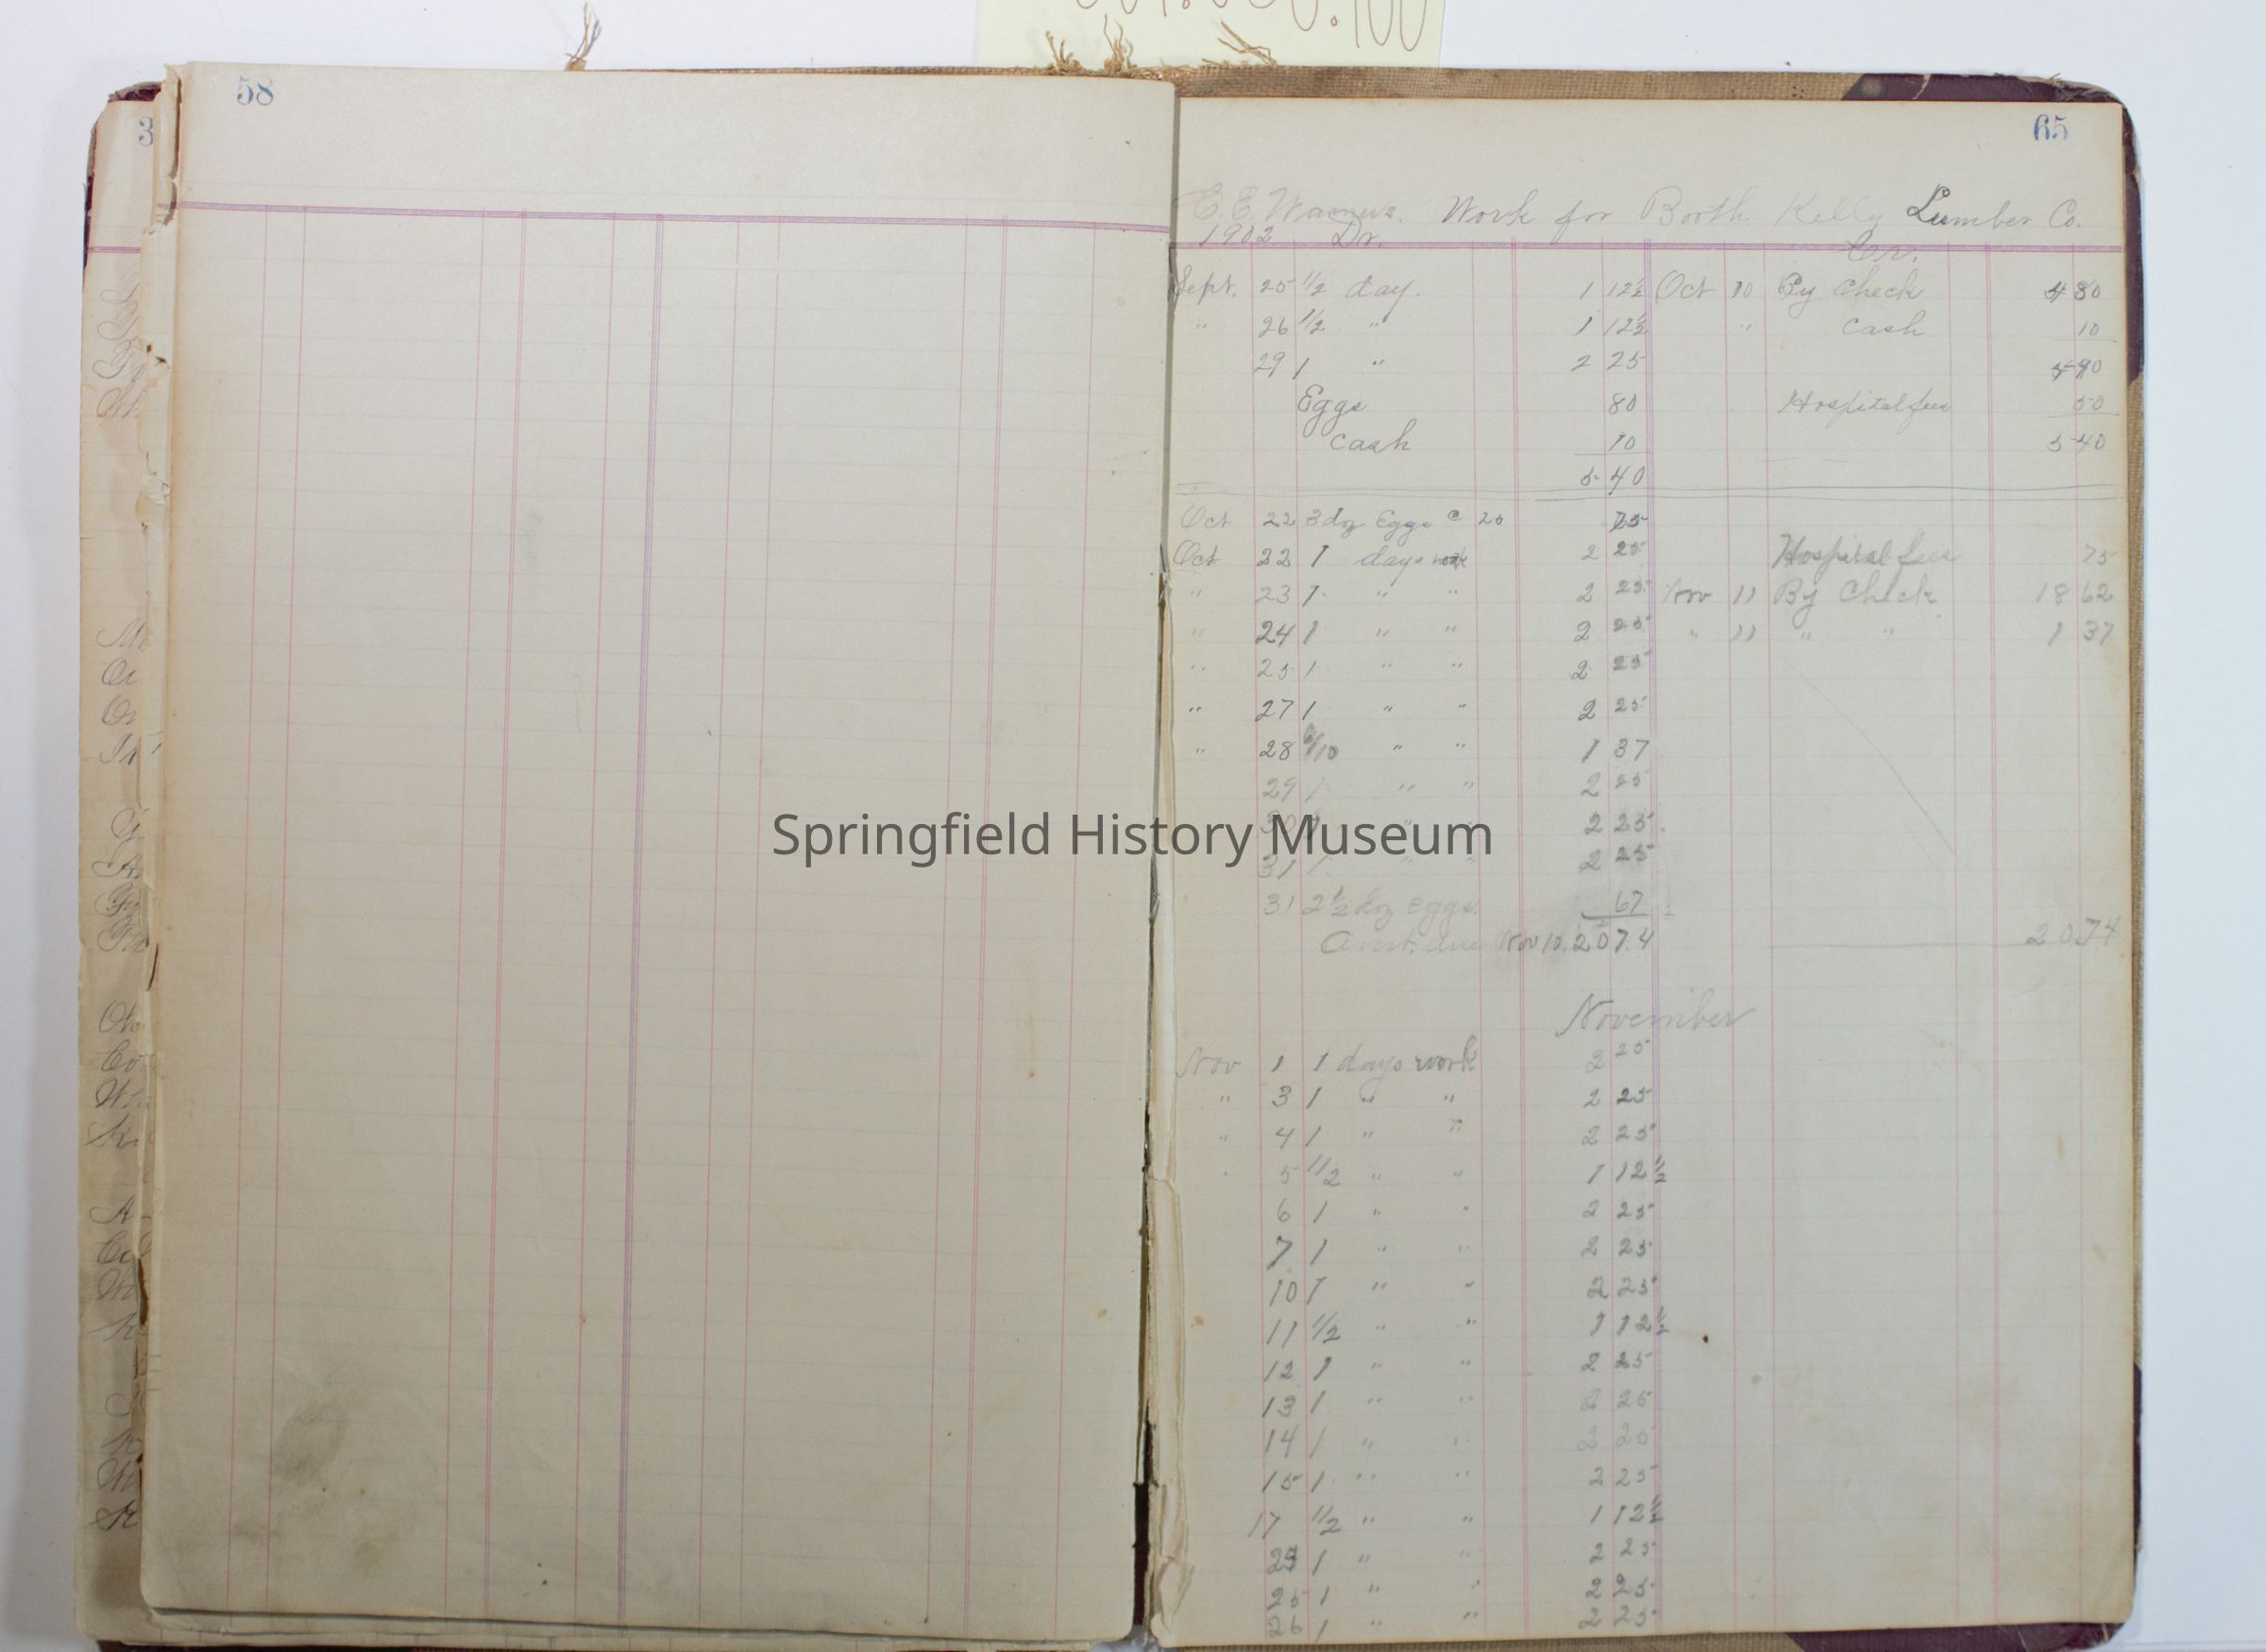 58
65
Work for Booth Kelly Lumber Co.
1902 Dr. Cr.
Sept. 25 1/2 day. 1 12½ Oct 10 By Check 4 80
" 26 1/2 " 1 12½ " Cash 10
29 1 " 2 25 4 90
Eggs 80 Hospital fees 50
Cash 10 5 40
5 40
Oct 22 3 doz Eggs @ 25 75
Oct 22 1 days work 2 25 Hospital fees 75
" 23 1 " " 2 25 Nov 11 By Check 18 62
" 24 1 " " 2 25 " 11 " " 1 37
" 25 1 " " 2 25
" 27 1 " " 2 25
" 28 6/10 " " 1 37
29 1 " " 2 25
30 1 " " 2 25
31 1 " " 2 25
31 2½ doz Eggs. 67
Amt. due Nov 10. 20 74 20.74
November
Nov 1 1 days work 2 25
" 3 1 " " 2 25
" 4 1 " " 2 25
" 5 1/2 " " 1 12½
6 1 " " 2 25
7 1 " " 2 25
10 1 " " 2 25
11 1/2 " " 1 12½
12 1 " " 2 25
13 1 " " 2 25
14 1 " " 2 25
15 1 " " 2 25
17 1/2 " " 1 12½
1 " " 2 25
25 1 " " 2 25
26 1 " " 2 25
Springfield History Museum